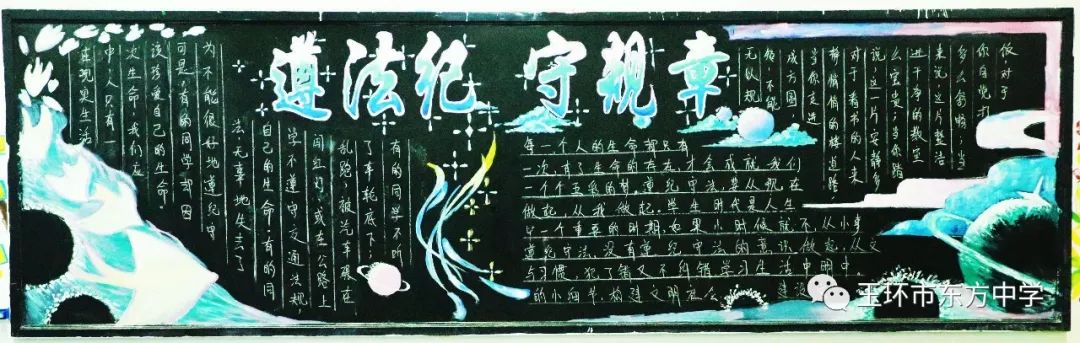 遵法纪 守规章
在现实生活
中,人只有一
次生命,我们应
该珍爱自己的生命,
可是,有的同学却因
为不能很好地遵纪守
法,无辜地失去了
自己的生命,有的同
学不遵守交通法规,
闯红灯,或在公路上
乱跑,被汽车碾在
了车轮底下;
有的同学不听
每一个人的生命都只有
一次,有了生命的存在,才会成就我们
一个个五彩的梦,遵纪守法,要从现在
做起,从我做起。学生时代是人生
中一个重要的时期,如果小时候就不从小事
遵纪守法,没有遵纪守法的意识
与习惯,犯了错又不纠错
学习生活中
的小细节,构建文明社会
无以规
矩,不能
成方圆,
当你走进
静悄悄的
对于看书的人来
说,这一片安静多
么宝贵;当你踏
进干净的教室
来说,这片整洁
多么舒畅;当
你自觉
玉环市东方中学